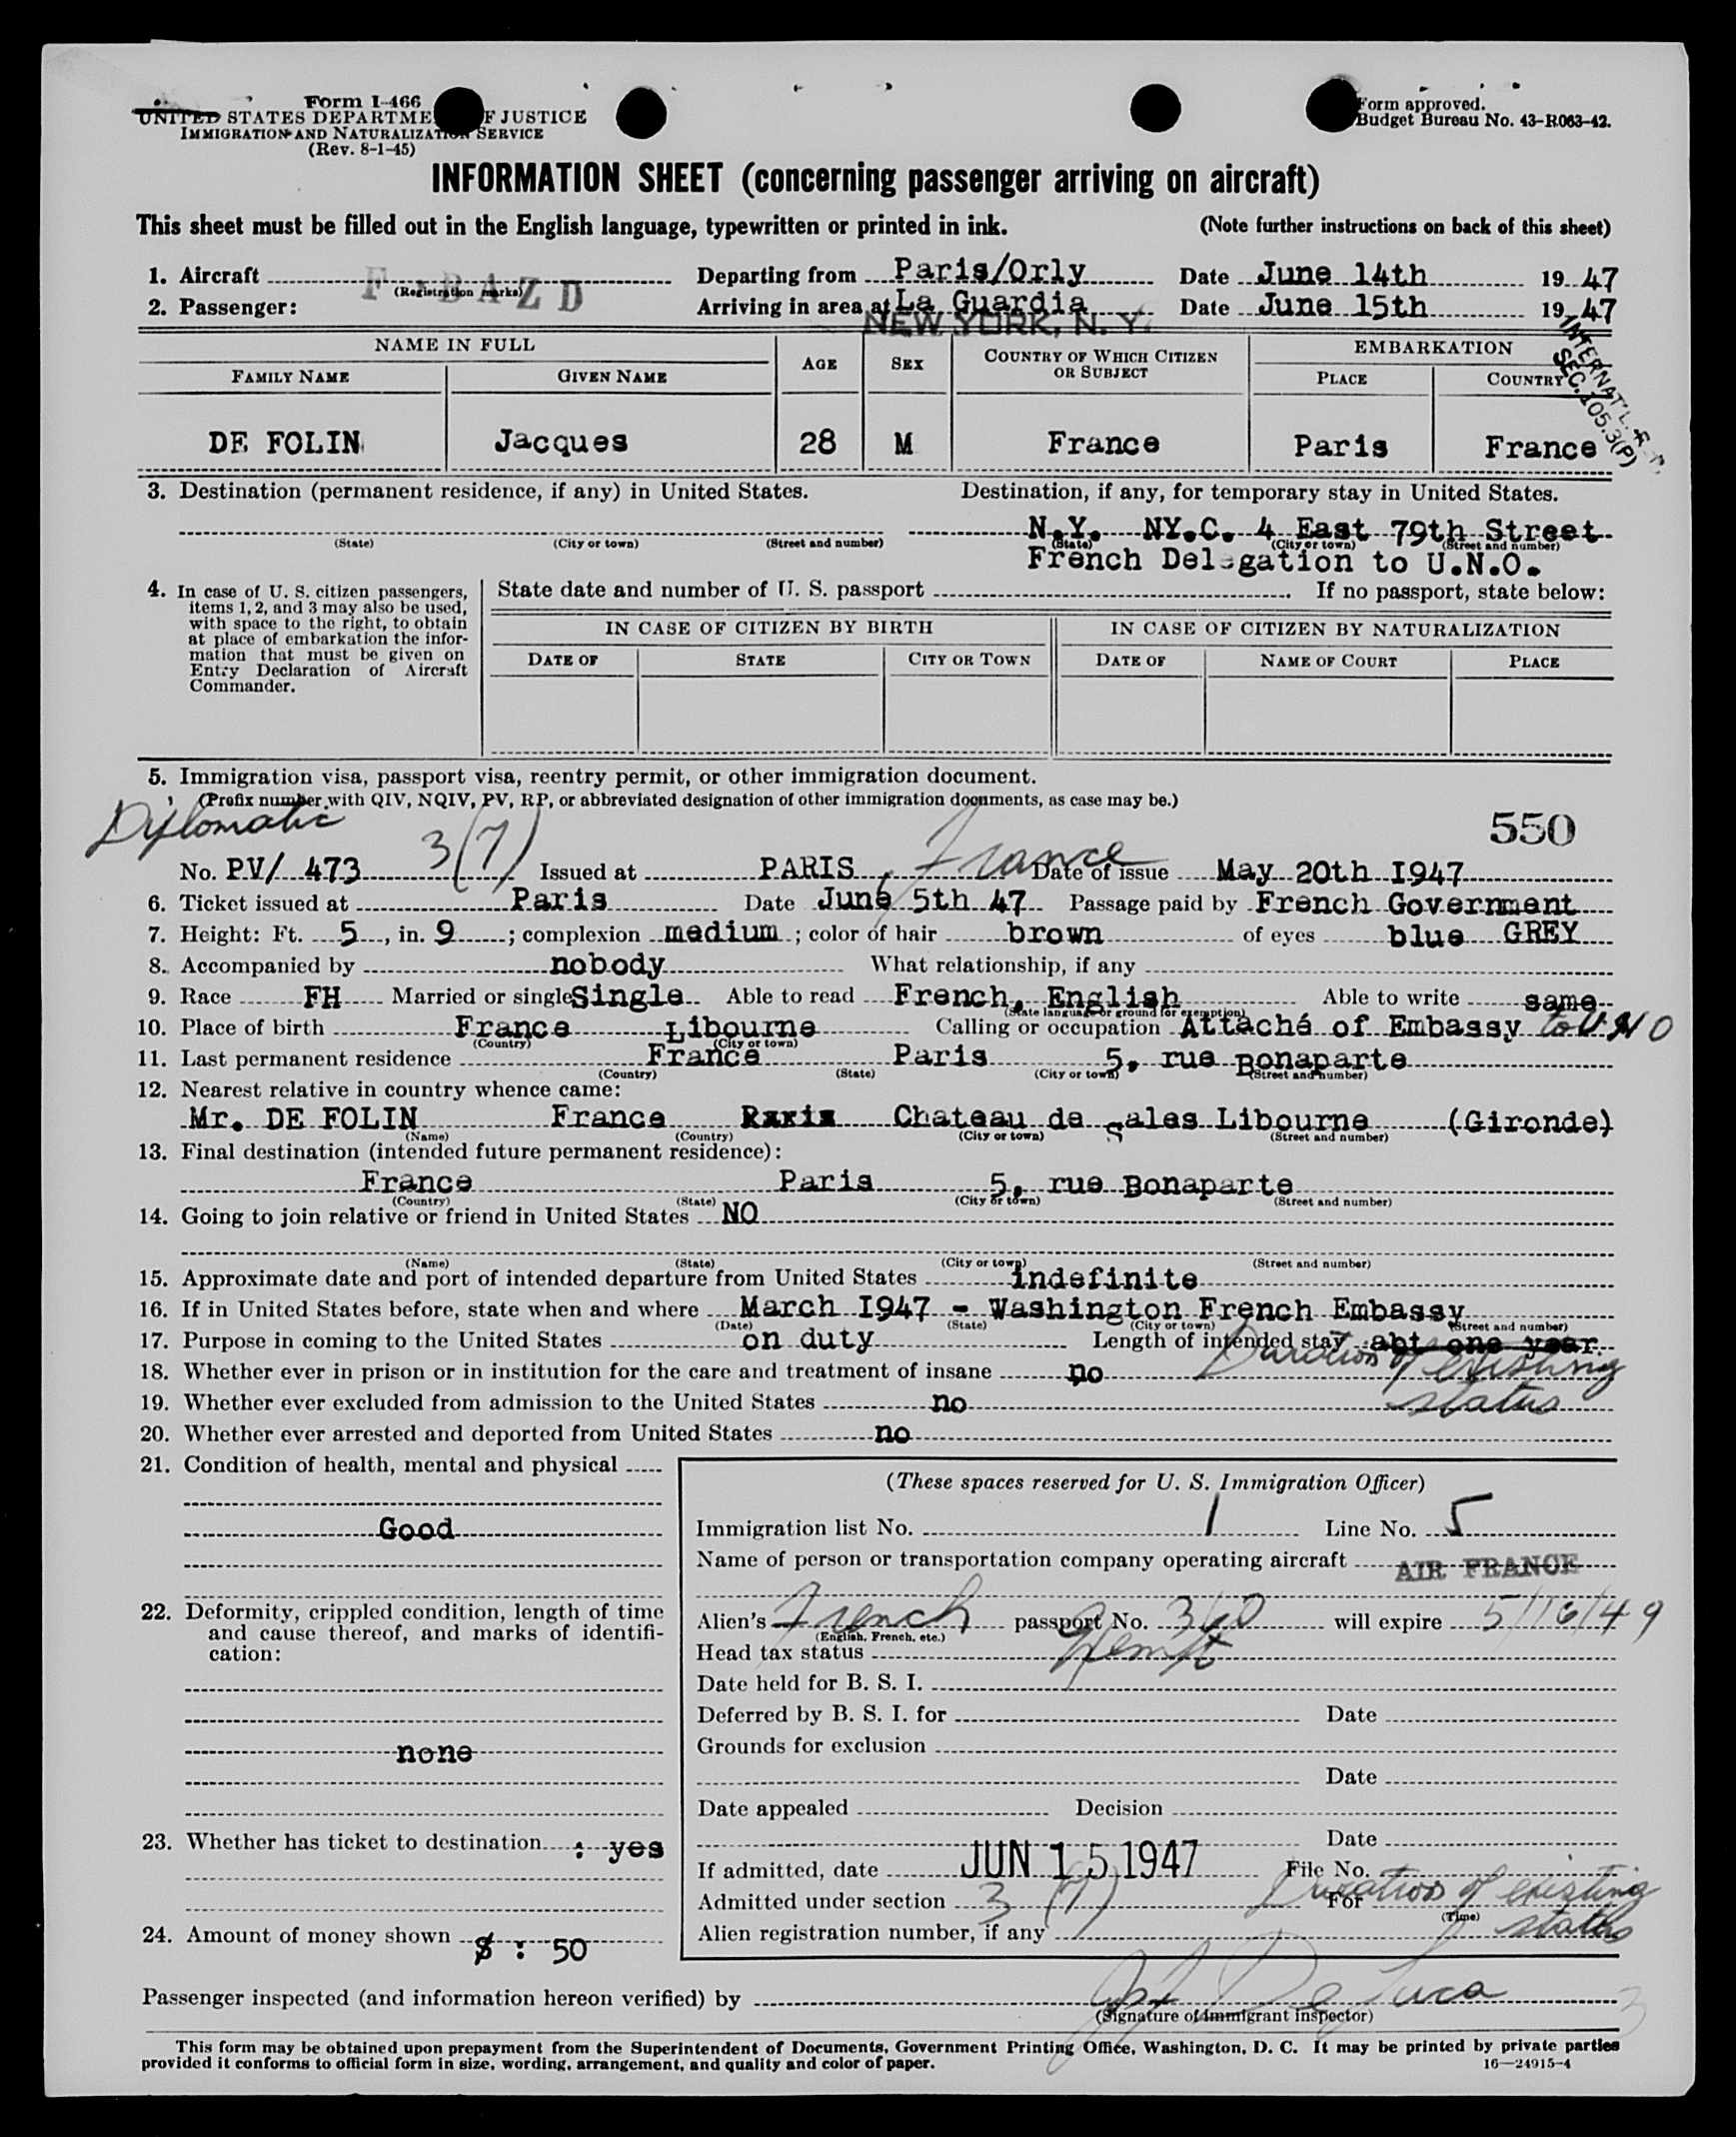 Form I-466
UNITED STATES DEPARTME F JUSTICE
IMMIGRATION AND NATURALIZATION SERVICE
(Rev. 8-1-45)
Form approved.
Budget Bureau No. 43-R063-42.
INFORMATION SHEET (concerning passenger arriving on aircraft)
This sheet must be filled out in the English language, typewritten or printed in ink. (Note further instructions on back of this sheet)
1. Aircraft F-BAZD Departing from Paris/Orly Date June 14th 19 47
(Registration marks)
2. Passenger: Arriving in area at La Guardia Date June 15th 19 47
NEW YORK, N. Y.
INTERNAT'L.
SEC. 105.3(P)
NAME IN FULL AGE SEX COUNTRY OF WHICH CITIZEN OR SUBJECT EMBARKATION
FAMILY NAME GIVEN NAME PLACE COUNTRY
DE FOLIN Jacques 28 M France Paris France
3. Destination (permanent residence, if any) in United States. Destination, if any, for temporary stay in United States.
N.Y. NY.C. 4 East 79th Street
(State) (City or town) (Street and number) (State) (City or town) (Street and number)
French Delegation to U.N.O.
4. In case of U. S. citizen passengers,
items 1, 2, and 3 may also be used,
with space to the right, to obtain
at place of embarkation the infor-
mation that must be given on
Entry Declaration of Aircraft
Commander.
State date and number of U. S. passport If no passport, state below:
IN CASE OF CITIZEN BY BIRTH IN CASE OF CITIZEN BY NATURALIZATION
DATE OF STATE CITY OR TOWN DATE OF NAME OF COURT PLACE
5. Immigration visa, passport visa, reentry permit, or other immigration document.
(Prefix number with QIV, NQIV, PV, RP, or abbreviated designation of other immigration documents, as case may be.)
Diplomatic 3(7) 550
No. PV/ 473 Issued at PARIS, France Date of issue May 20th I947
6. Ticket issued at Paris Date June 5th 47 Passage paid by French Government
7. Height: Ft. 5, in. 9; complexion medium; color of hair brown of eyes blue GREY
8. Accompanied by nobody What relationship, if any
9. Race FH Married or single Single Able to read French, English Able to write same
(State language or ground for exemption)
10. Place of birth France Libourne Calling or occupation Attaché of Embassy to U.N O
(Country) (City or town)
11. Last permanent residence France Paris 5, rue Bonaparte
(Country) (State) (City or town) (Street and number)
12. Nearest relative in country whence came:
Mr. DE FOLIN France Chateau de Sales Libourne (Gironde)
(Name) (Country) (City or town) (Street and number)
13. Final destination (intended future permanent residence):
France Paris 5, rue Bonaparte
(Country) (State) (City or town) (Street and number)
14. Going to join relative or friend in United States NO
(Name) (State) (City or town) (Street and number)
15. Approximate date and port of intended departure from United States indefinite
16. If in United States before, state when and where March I947 - Washington French Embassy
(Date) (State) (City or town) (Street and number)
17. Purpose in coming to the United States on duty Length of intended stay abt one year.
Duration of existing
status
18. Whether ever in prison or in institution for the care and treatment of insane no
19. Whether ever excluded from admission to the United States no
20. Whether ever arrested and deported from United States no
21. Condition of health, mental and physical
Good
22. Deformity, crippled condition, length of time
and cause thereof, and marks of identifi-
cation:
none
23. Whether has ticket to destination : yes
24. Amount of money shown $ : 50
(These spaces reserved for U. S. Immigration Officer)
Immigration list No. 1 Line No. 5
Name of person or transportation company operating aircraft AIR FRANCE
Alien's French passport No. 360 will expire 5/16/49
(English, French, etc.)
Head tax status
Date held for B. S. I.
Deferred by B. S. I. for Date
Grounds for exclusion
Date
Date appealed Decision
Date
If admitted, date JUN 15 1947 File No.
Admitted under section 3 (7) For Duration of existing
(Time)
status
Alien registration number, if any
Passenger inspected (and information hereon verified) by De Luca
(Signature of immigrant inspector)
This form may be obtained upon prepayment from the Superintendent of Documents, Government Printing Office, Washington, D. C. It may be printed by private parties
provided it conforms to official form in size, wording, arrangement, and quality and color of paper. 16—24915-4